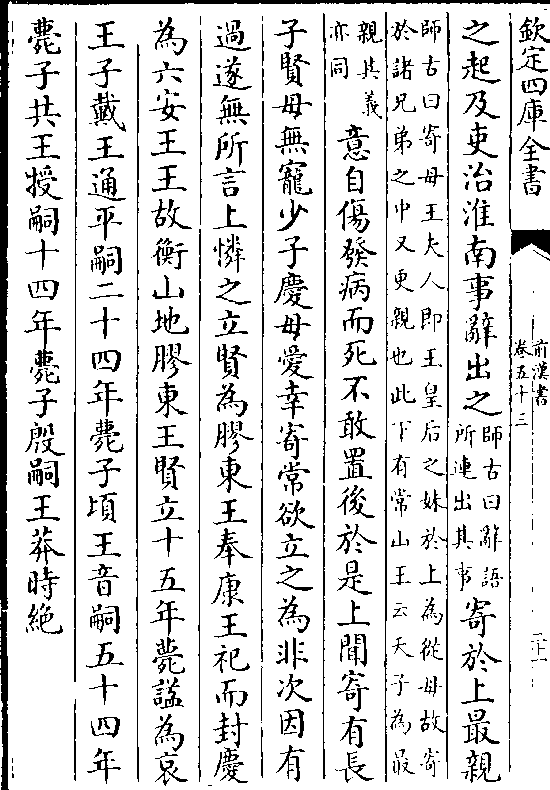 欽定四庫全書
前漢書
卷五十三
二十一
之起及吏治淮南事辭出之師古曰辭語
所連出其事寄於上最親
師古曰寄母王夫人即王皇后之妹於上為從母故寄
於諸兄弟之中又更親也此下有常山王云天子為最
親其義
亦同意自傷發病而死不敢置後於是上聞寄有長
子賢母無寵少子慶母愛幸寄常欲立之為非次因有
過遂無所言上憐之立賢為膠東王奉康王祀而封慶
為六安王王故衡山地膠東王賢立十五年薨諡為哀
王子戴王通平嗣二十四年薨子頃王音嗣五十四年
薨子共王授嗣十四年薨子殷嗣王莽時絶